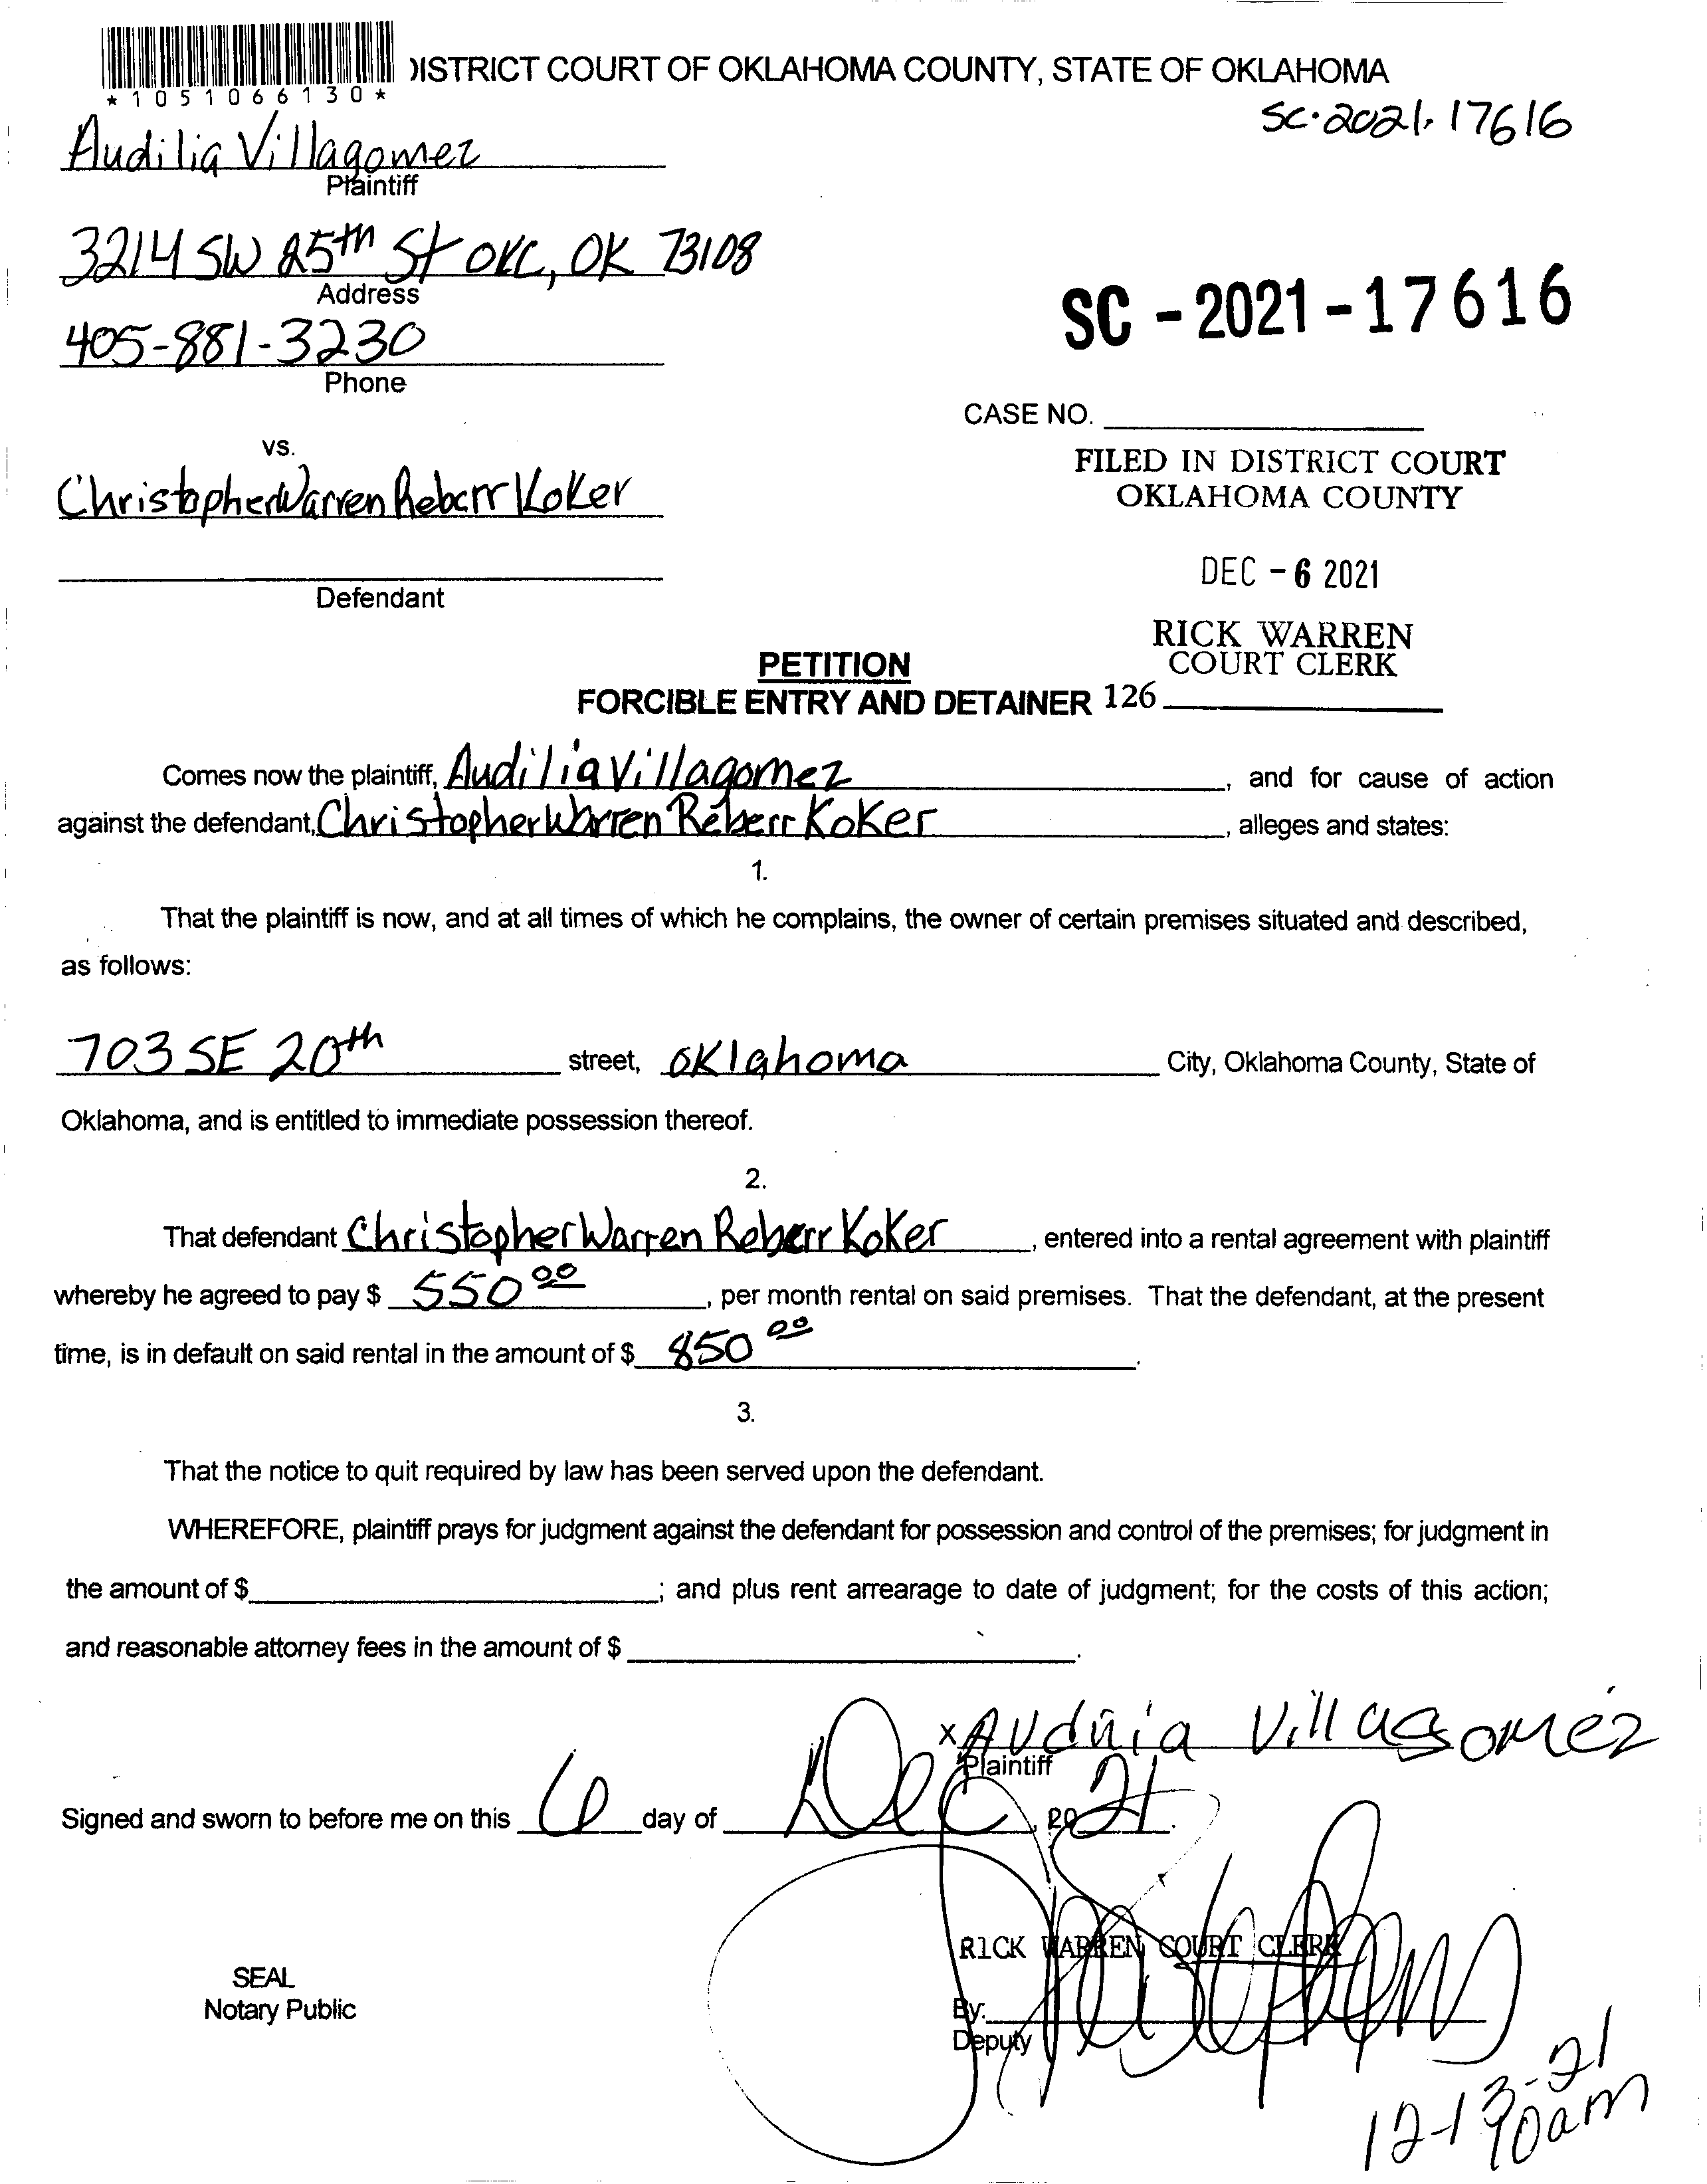 DISTRICT COURT OF OKLAHOMA COUNTY, STATE OF OKLAHOMA
*1051066130*
SC-2021-17616
Audilia Villagomez
Plaintiff
3214 SW 25th St OKC, OK 73108
Address
SC-2021-17616
405-881-3230
Phone
CASE NO.
vs.
FILED IN DISTRICT COURT
OKLAHOMA COUNTY
Christopher Warren Reberr Koker
DEC -6 2021
Defendant
RICK WARREN
COURT CLERK
PETITION
FORCIBLE ENTRY AND DETAINER 126
Comes now the plaintiff, Audilia Villagomez, and for cause of action
against the defendant, Christopher Warren Reberr Koker, alleges and states:
1.
That the plaintiff is now, and at all times of which he complains, the owner of certain premises situated and described,
as follows:
703 SE 20th street, oklahoma City, Oklahoma County, State of
Oklahoma, and is entitled to immediate possession thereof.
2.
That defendant Christopher Warren Reberr Koker, entered into a rental agreement with plaintiff
whereby he agreed to pay $ 550 00, per month rental on said premises. That the defendant, at the present
time, is in default on said rental in the amount of $ 850 00.
3.
That the notice to quit required by law has been served upon the defendant.
WHEREFORE, plaintiff prays for judgment against the defendant for possession and control of the premises; for judgment in
the amount of $; and plus rent arrearage to date of judgment; for the costs of this action;
and reasonable attorney fees in the amount of $.
x Audilia Villagomez
Plaintiff
Signed and sworn to before me on this 6 day of Dec, 2021.
RICK WARREN, COURT CLERK
SEAL
Notary Public
By:
Deputy
12-13-21
10am